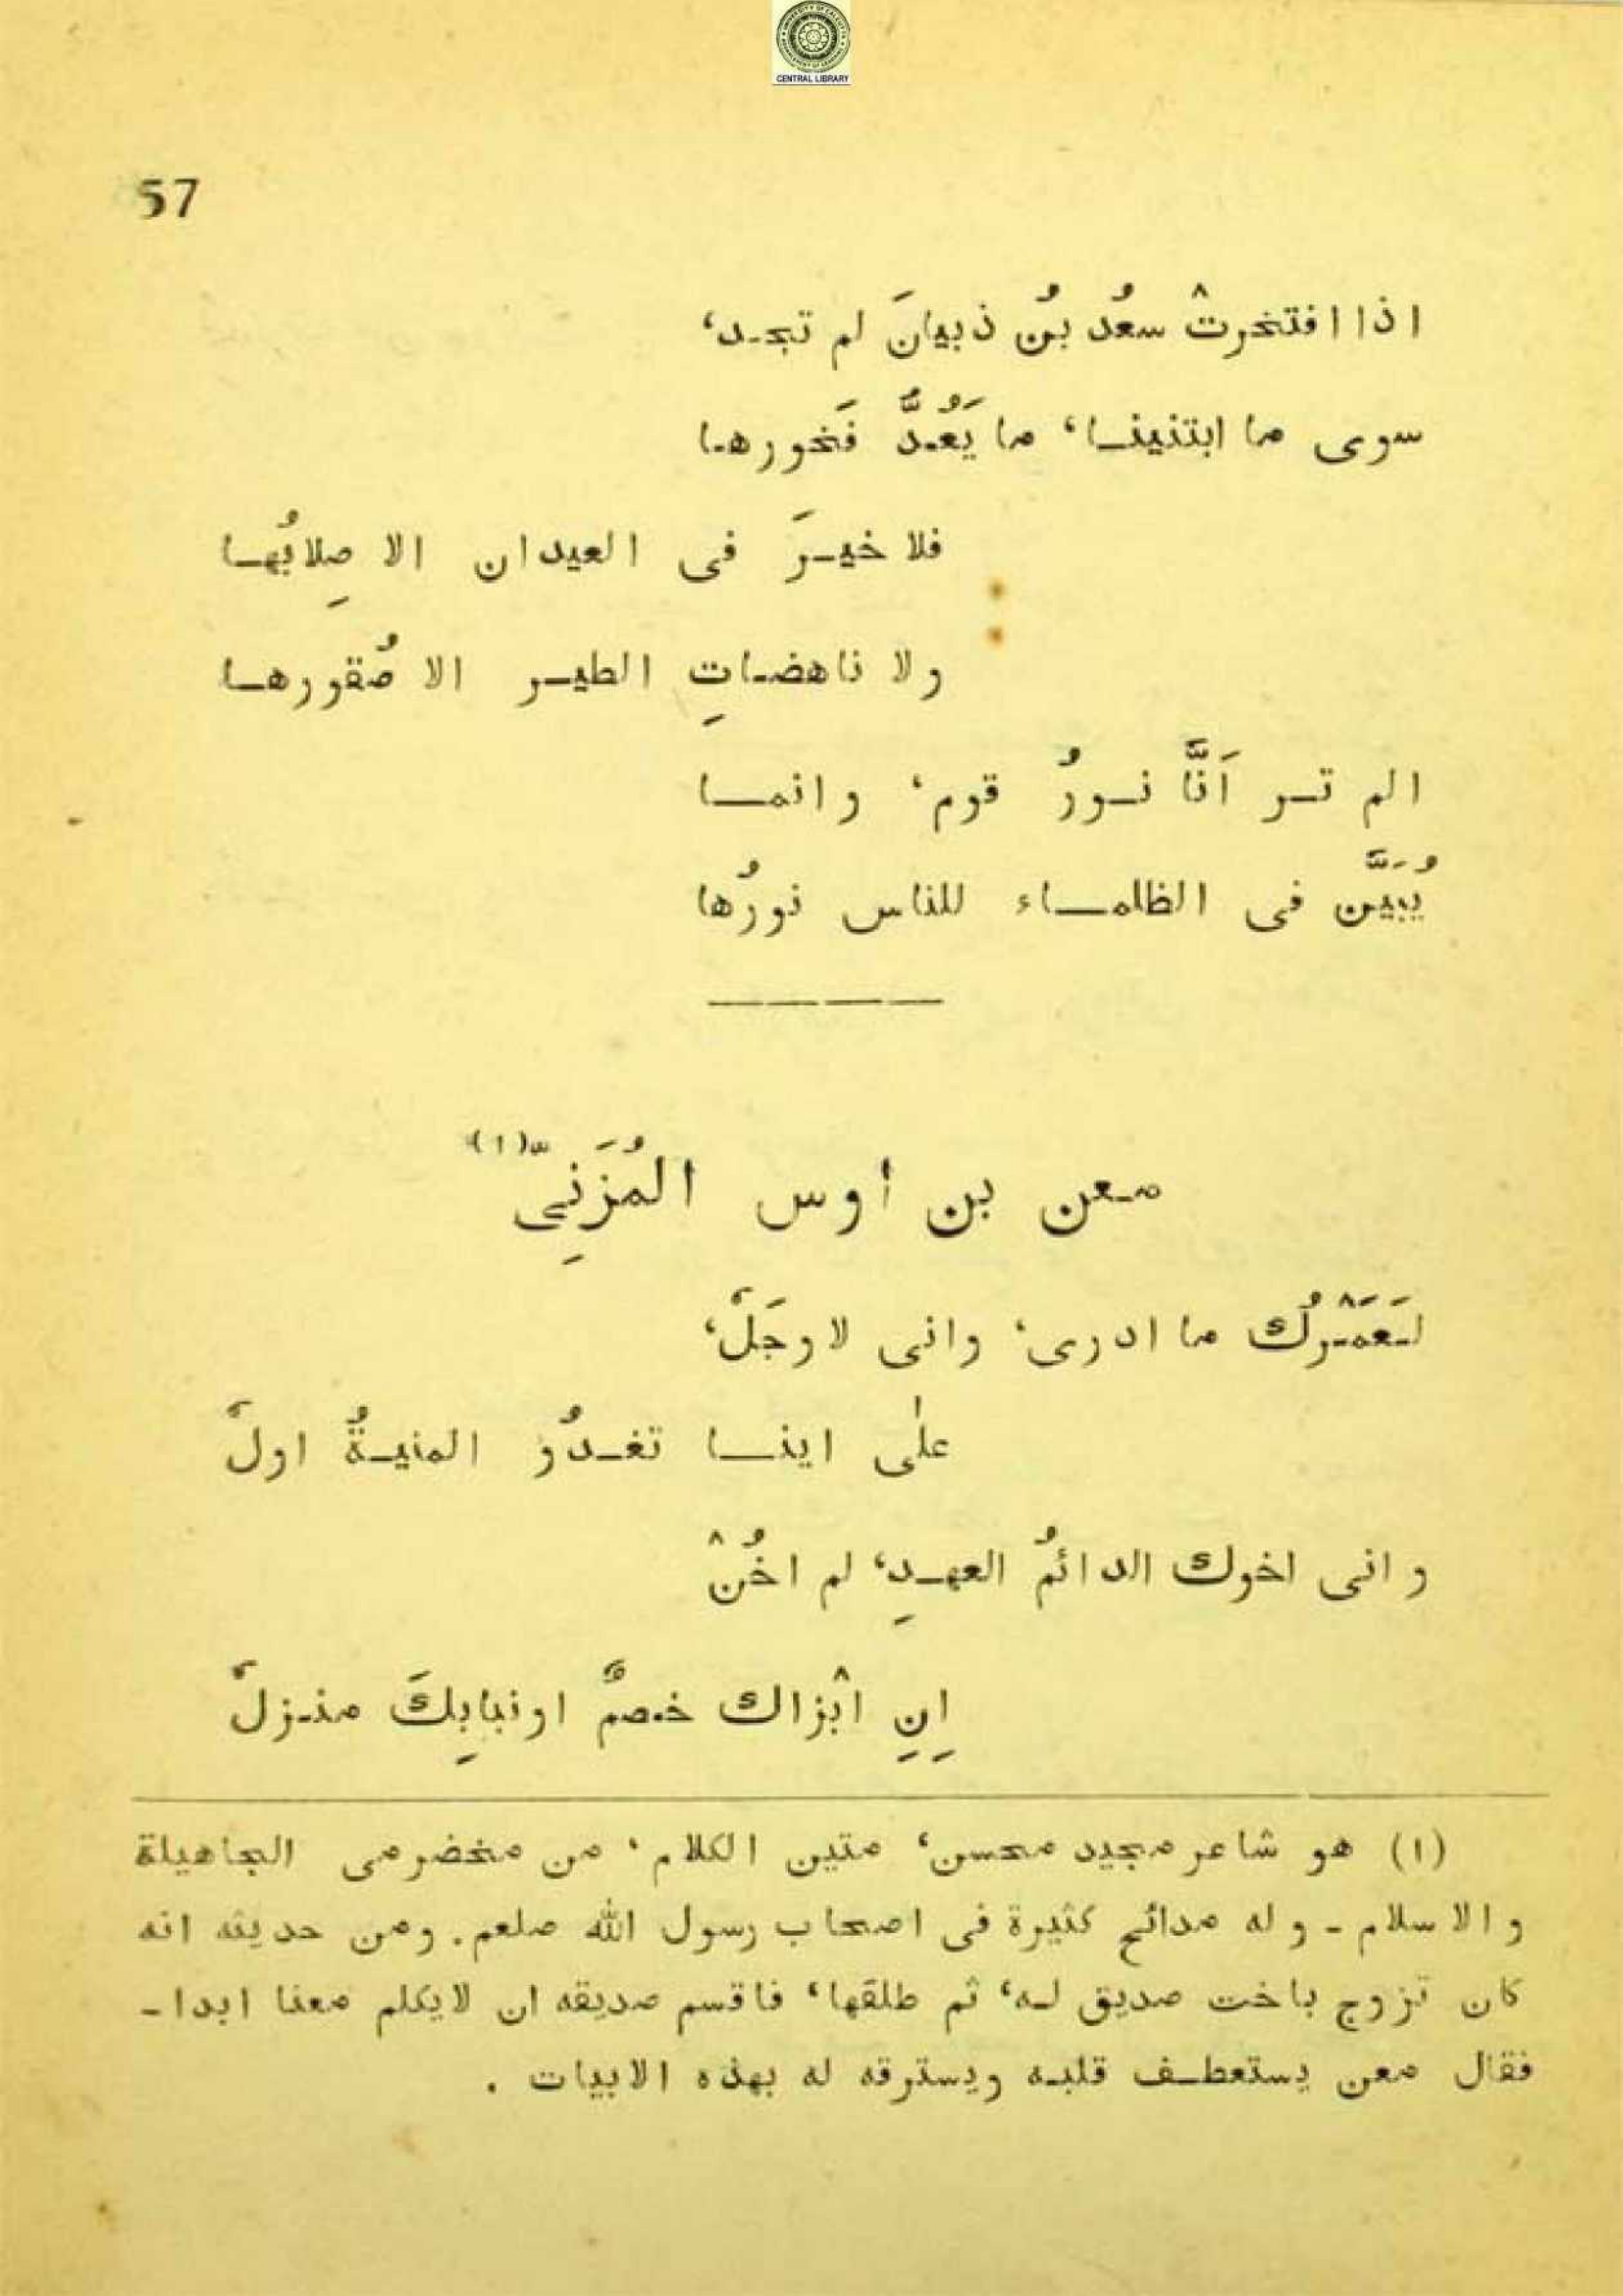 CENTRAL LIBRARY
57
اذا افتخرتْ سعدُ بنُ ذبيانَ لم تجد،
سوى ما ابتنينا، ما يَعُدُّ فَخورها
فلا خيرَ فى العيدان الا صِلابُها
ولا ناهضاتِ الطير الا صُقورها
الم تر اَنَّا نورُ قوم، وانما
يُبَيَّن فى الظلماء للناس نورُها
معن بن اوس المُزَنِىّ(١)
لَعَمْرُك ما ادرى، وانى لاوجَلُ،
علٰى اينا تغدُو المنيةُ اولُ
وانى اخوك الدائمُ العهدِ، لم اخُنْ
اِنِ ابْزاك خصمٌ اونبابِكَ منزلُ
(١) هو شاعر مجيد محسن، متين الكلام، من مخضرمى الجاهيلة
والاسلام - وله مدائح كثيرة فى اصحاب رسول الله صلعم. ومن حديثه انه
كان تزوج باخت صديق له، ثم طلقها، فاقسم صديقه ان لايكلم معنا ابدا -
فقال معن يستعطف قلبه ويسترقه له بهذه الابيات .